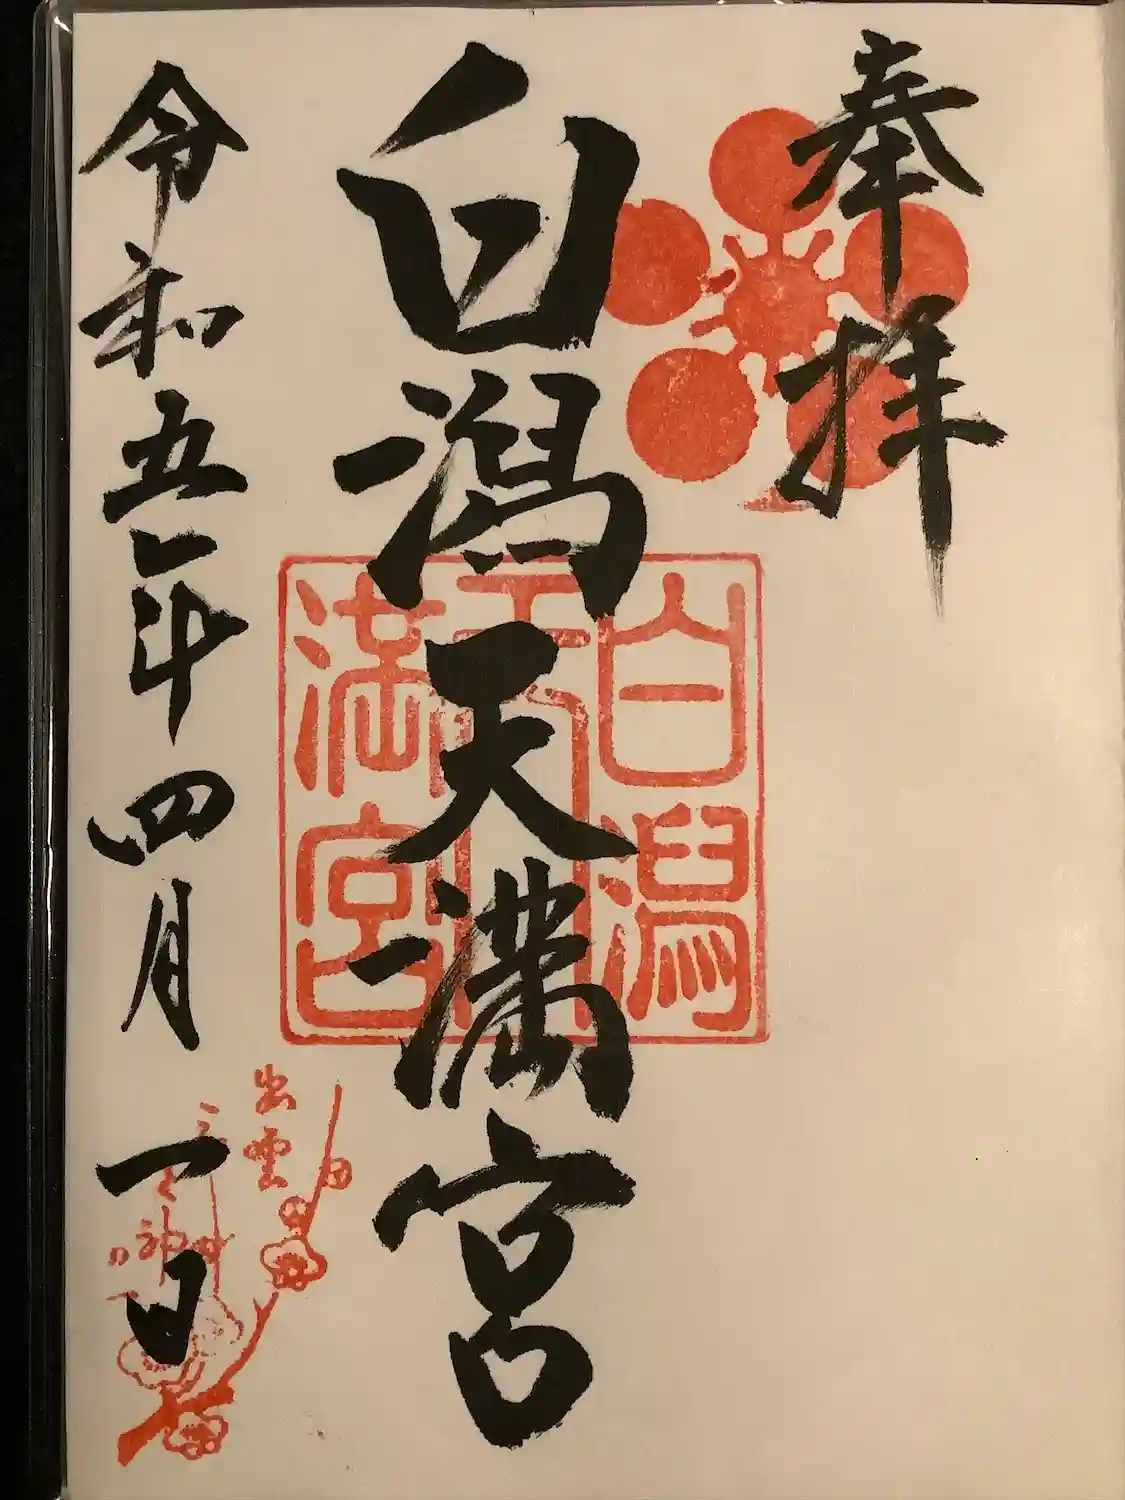 奉拝
白潟天満宮
白潟
天
満宮
令和五年四月一日
出雲
神